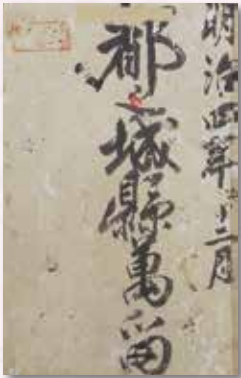 明治四年十二月
都之城縣萬留